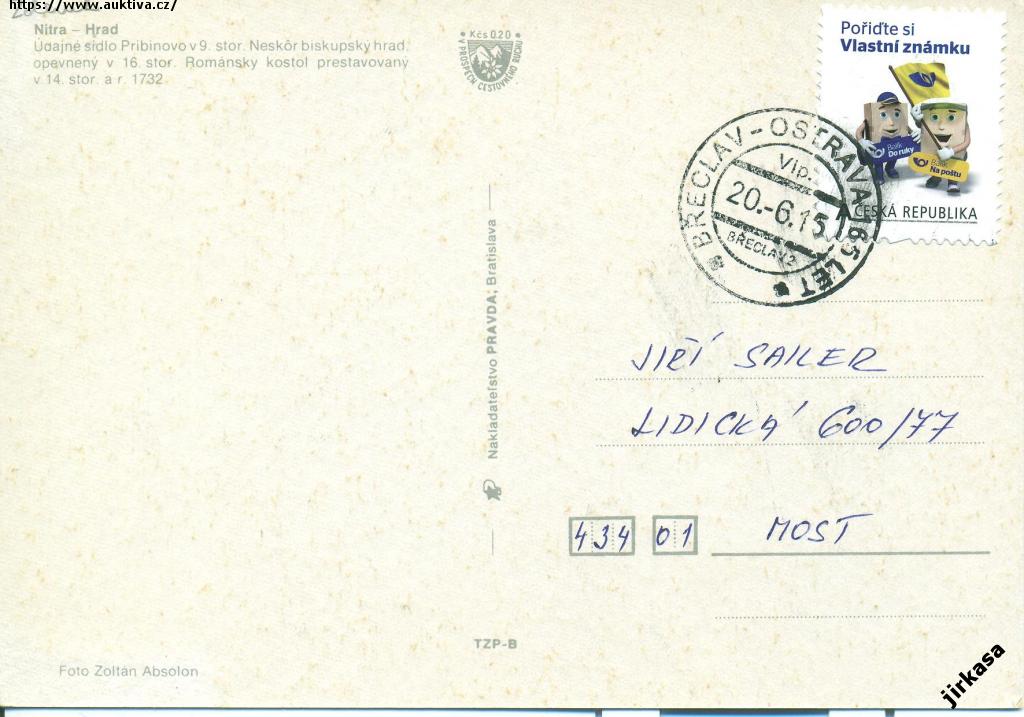 https://www.auktiva.cz/
Nitra – Hrad
Údajné sídlo Pribinovo v 9. stor. Neskôr biskupský hrad,
opevnený v 16. stor. Románsky kostol prestavovaný
v 14. stor. a r. 1732.
Kčs 0,20
V PROSPECH CESTOVNÉHO RUCHU
Pořiďte si
Vlastní známku
Balík
Do ruky
Balík
Na poštu
ČESKÁ REPUBLIKA
BŘECLAV – OSTRAVA 165 LET
Vlp.
20.-6.15
BŘECLAV 2
Nakladateľstvo PRAVDA, Bratislava
JIŘÍ SAILER
LIDICKÁ 600/77
434 01 MOST
TZP-B
Foto Zoltán Absolon
jirkasa